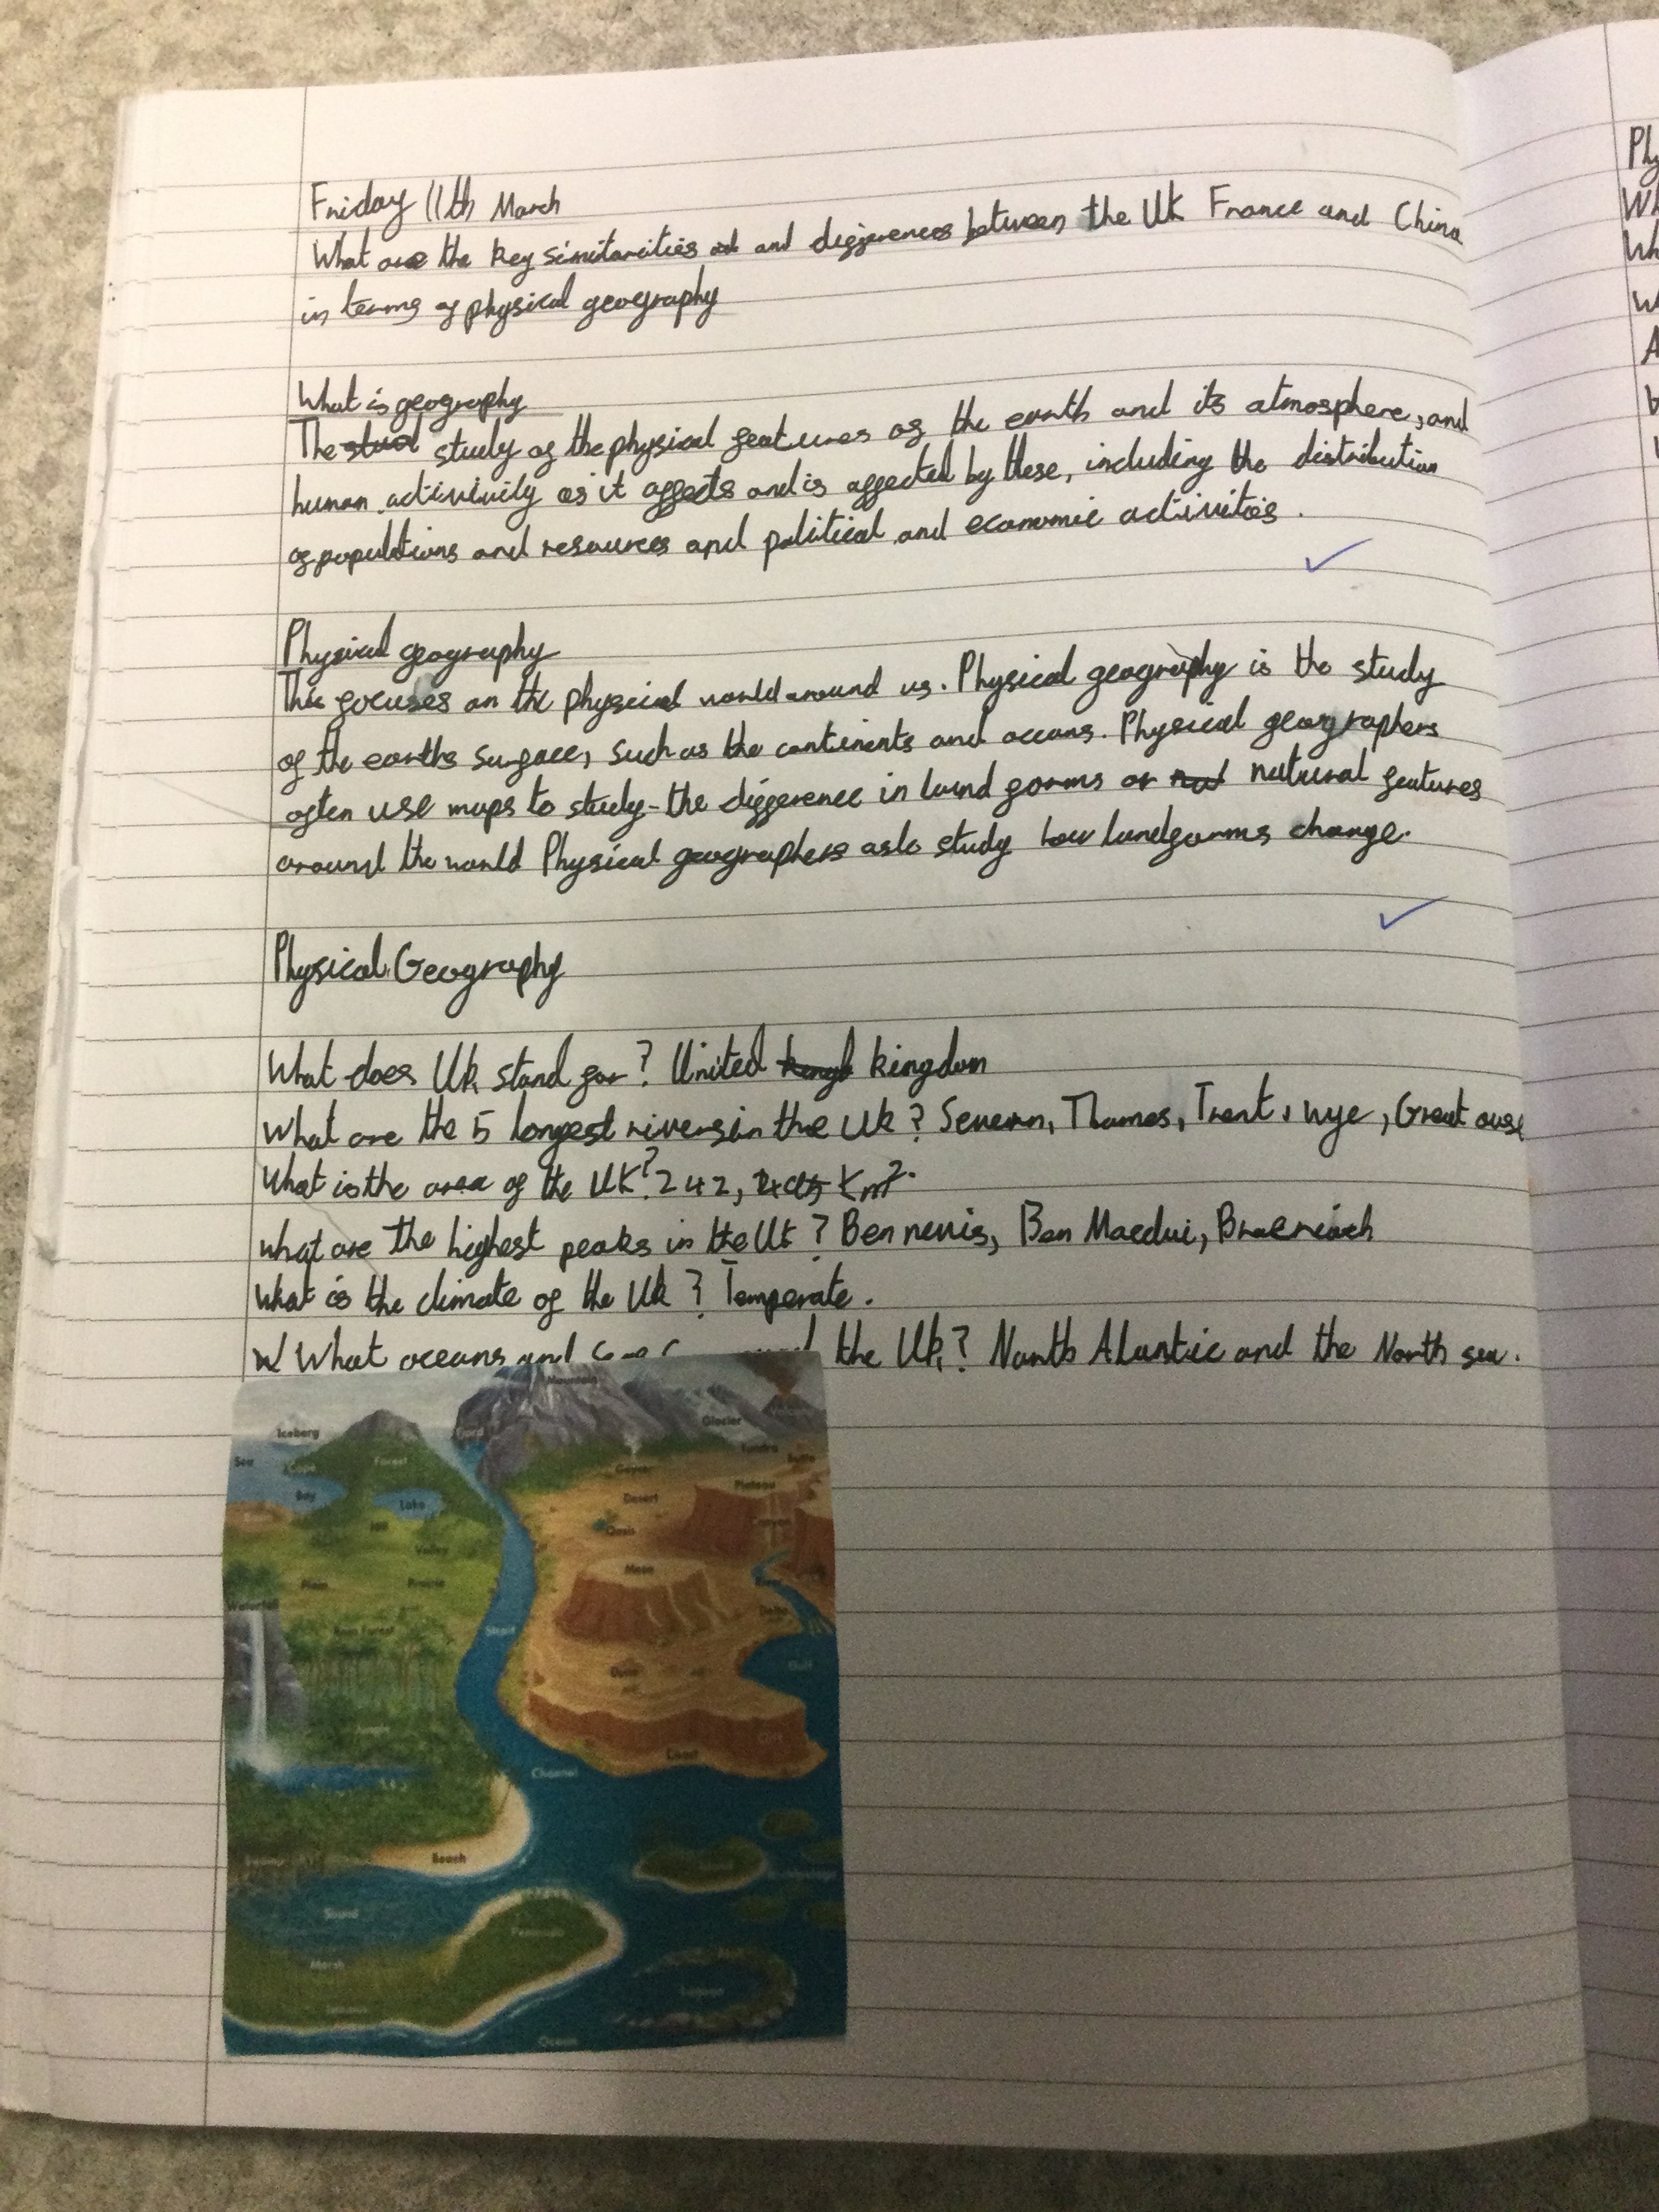 Friday 11th March
What are the key similarities and differences between the UK France and China
in terms of physical geography
What is geography
The study of the physical features of the earth and its atmosphere, and
human activivily as it affects and is affected by these, including the distribution
of populations and resources and political and economic activities.
Physical geography
This focuses on the physical world around us. Physical geography is the study
of the earths surface, such as the continents and oceans. Physical geographers
often use maps to study the difference in land forms or natural features
around the world Physical geographers aslo study how landforms change.
Physical Geography
What does Uk stand for? United kingdom
What are the 5 longest rivers in the Uk? Severn, Thames, Trent, wye, Great ouse
What is the area of the UK? 242, km².
what are the highest peaks in the Uk? Ben nevis, Ben Macdui, Braeriach
What is the climate of the Uk? Temperate.
What oceans and the Uk? North Alantic and the North sea.
Mountain
Glacier
Iceberg
Fjord
Tundra
Butte
Sea
Cape
Forest
Geyser
Plateau
Bay
Lake
Desert
Canyon
Hill
Oasis
Valley
Mesa
River
Plain
Prairie
Delta
Waterfall
Rain Forest
Strait
Gulf
Dune
Jungle
Cliff
Coast
Channel
Beach
Sound
Peninsula
Marsh
Lagoon
Ocean